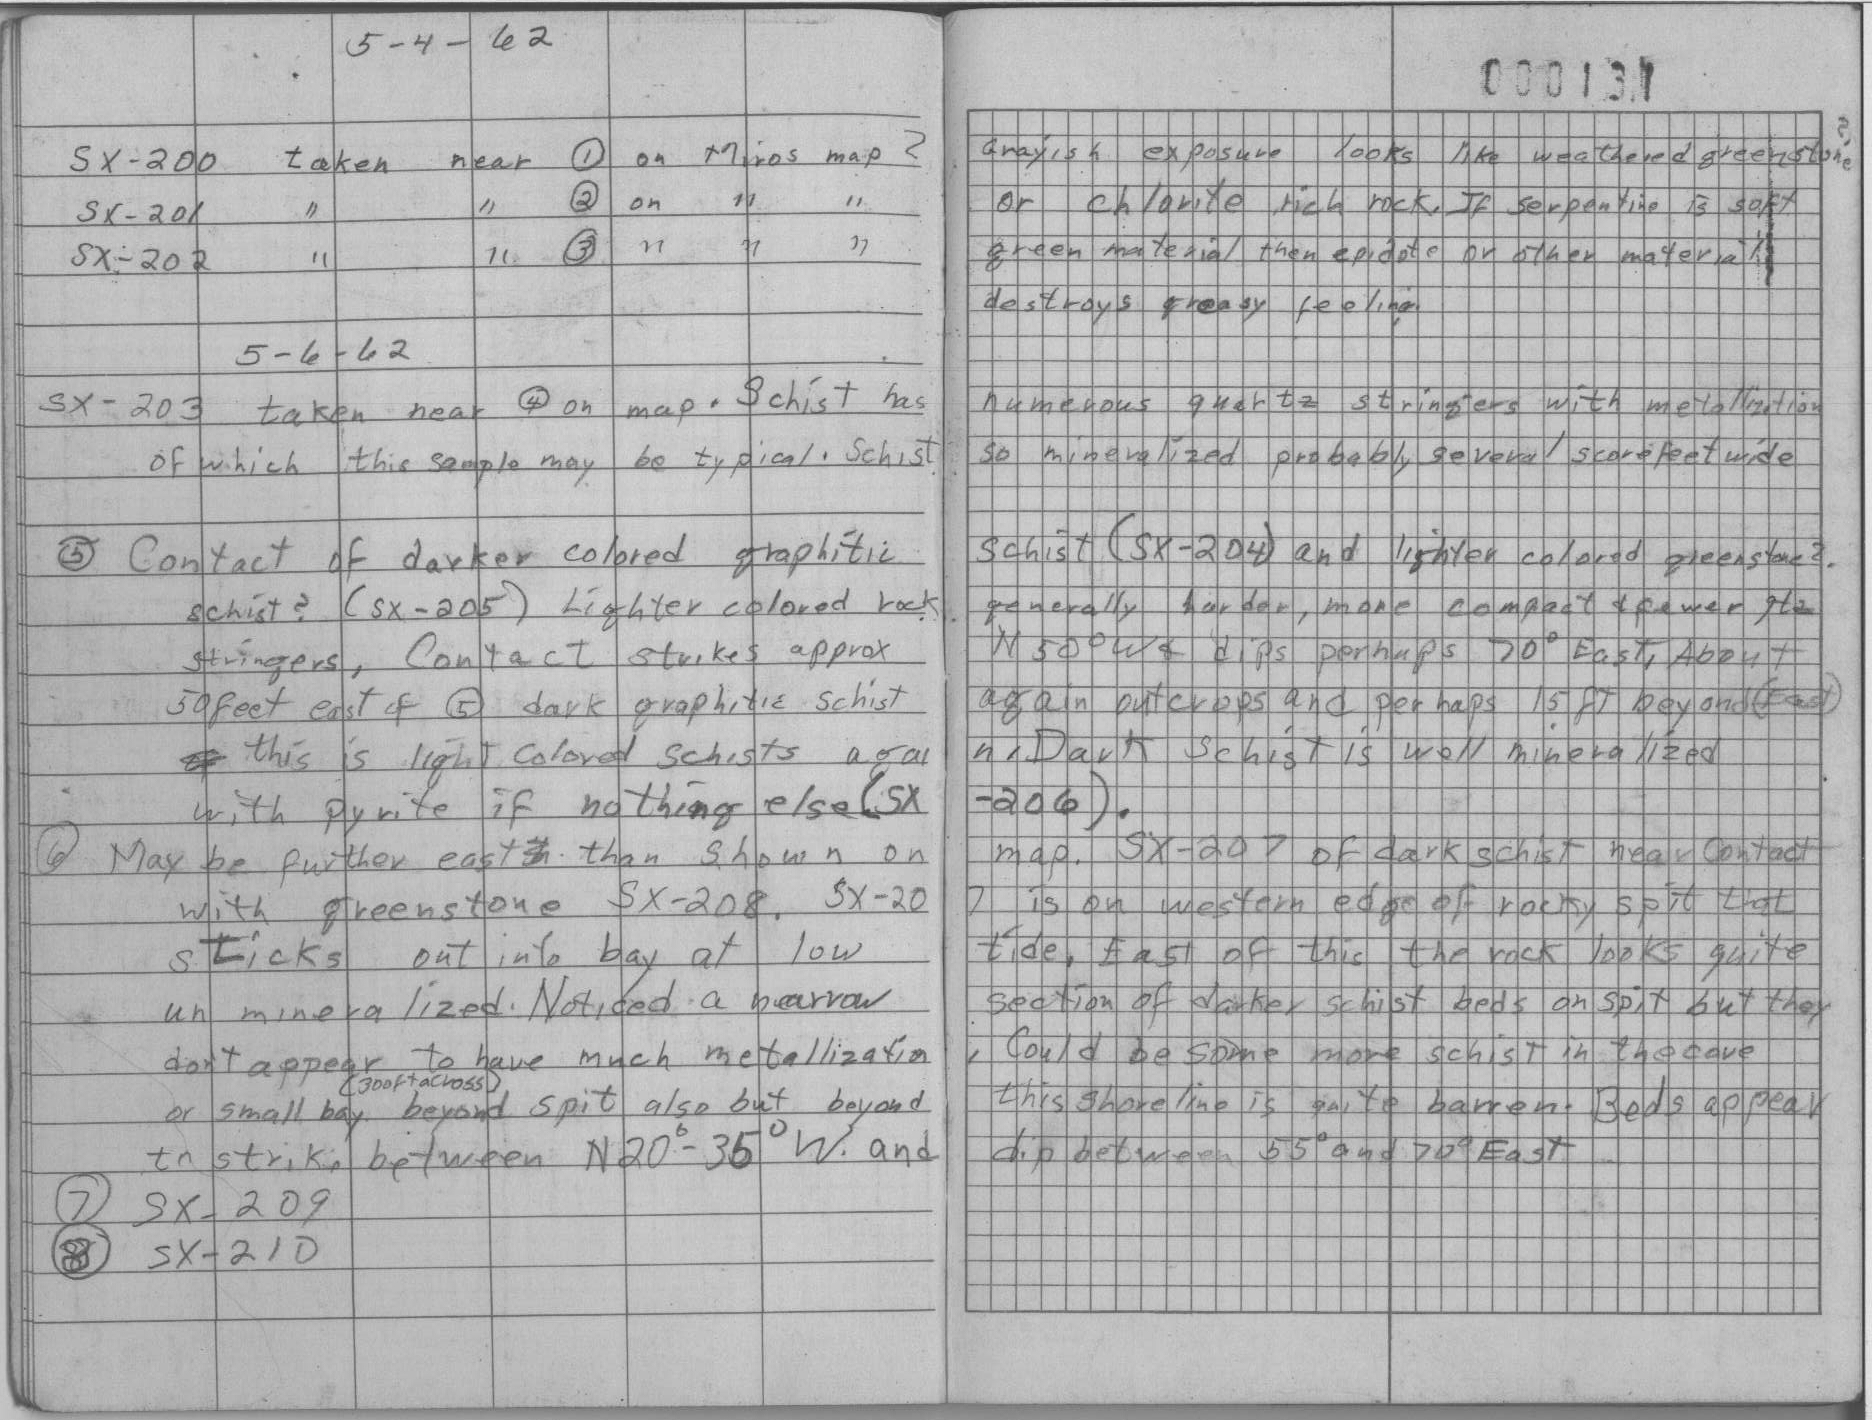 5-4-62
000131
SX-200 taken near ① on Miros map ? Grayish exposure looks like weathered greenstone
SX-201 " " ② on " " or chlorite rich rock. If serpentine is soft
SX-202 " " ③ " " " green material then epidote or other material
destroys greasy feeling.
5-6-62
SX-203 taken near ④ on map. Schist has numerous quartz stringers with metallization
of which this sample may be typical. Schist so mineralized probably several score feet wide
⑤ Contact of darker colored graphitic schist (SX-204) and lighter colored greenstone?.
schist? (SX-205) Lighter colored rock generally harder, more compact & fewer qtz
stringers, Contact strikes approx N 50° W & dips perhaps 70° East, About
50 feet east of ⑤ dark graphitic schist again outcrops and perhaps 15 ft beyond (East)
this is light colored schists agai n. Dark schist is well mineralized
with pyrite if nothing else (SX -206).
⑥ May be further east than shown on map. SX-207 of dark schist near contact
with greenstone SX-208. SX-20 7 is on western edge of rocky spit that
sticks out into bay at low tide, East of this the rock looks quite
un mineralized. Noticed a nearrow section of darker schist beds on spit but they
don't appear to have much metallization , Could be some more schist in the cove
(300ft across)
or small bay beyond spit also but beyond this shoreline is quite barren. Beds appear
to strike between N20°-35° W. and dip between 55° and 70° East
⑦ SX-209
⑧ SX-210